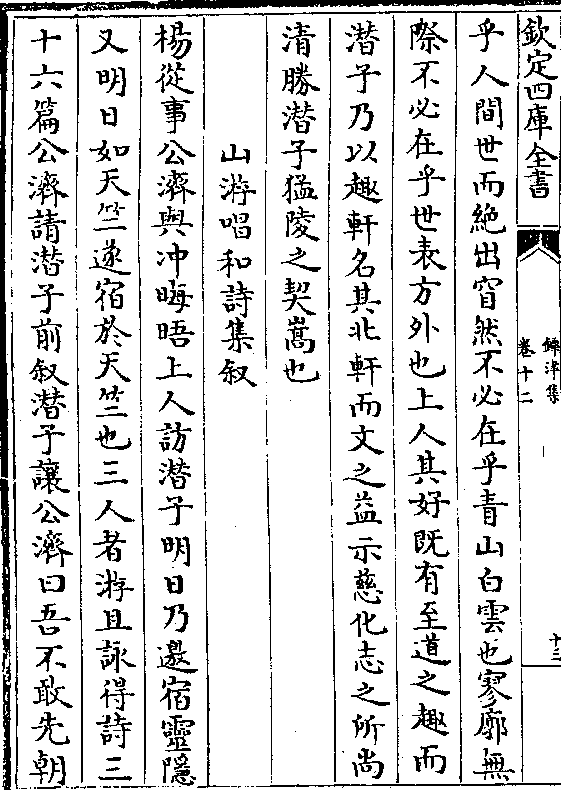 欽定四庫全書
鐔津集
卷十二
十三
乎人間世而絶出窅然不必在乎青山白雲也寥廓無
際不必在乎世表方外也上人其好既有至道之趣而
潜子乃以趣軒名其北軒而文之益示慈化志之所尚
清勝潜子猛陵之契嵩也
山游唱和詩集叙
楊從事公濟與冲晦晤上人訪潜子明日乃邀宿靈隱
又明日如天竺遂宿於天竺也三人者游且詠得詩三
十六篇公濟請潜子前叙潜子讓公濟曰吾不敢先朝